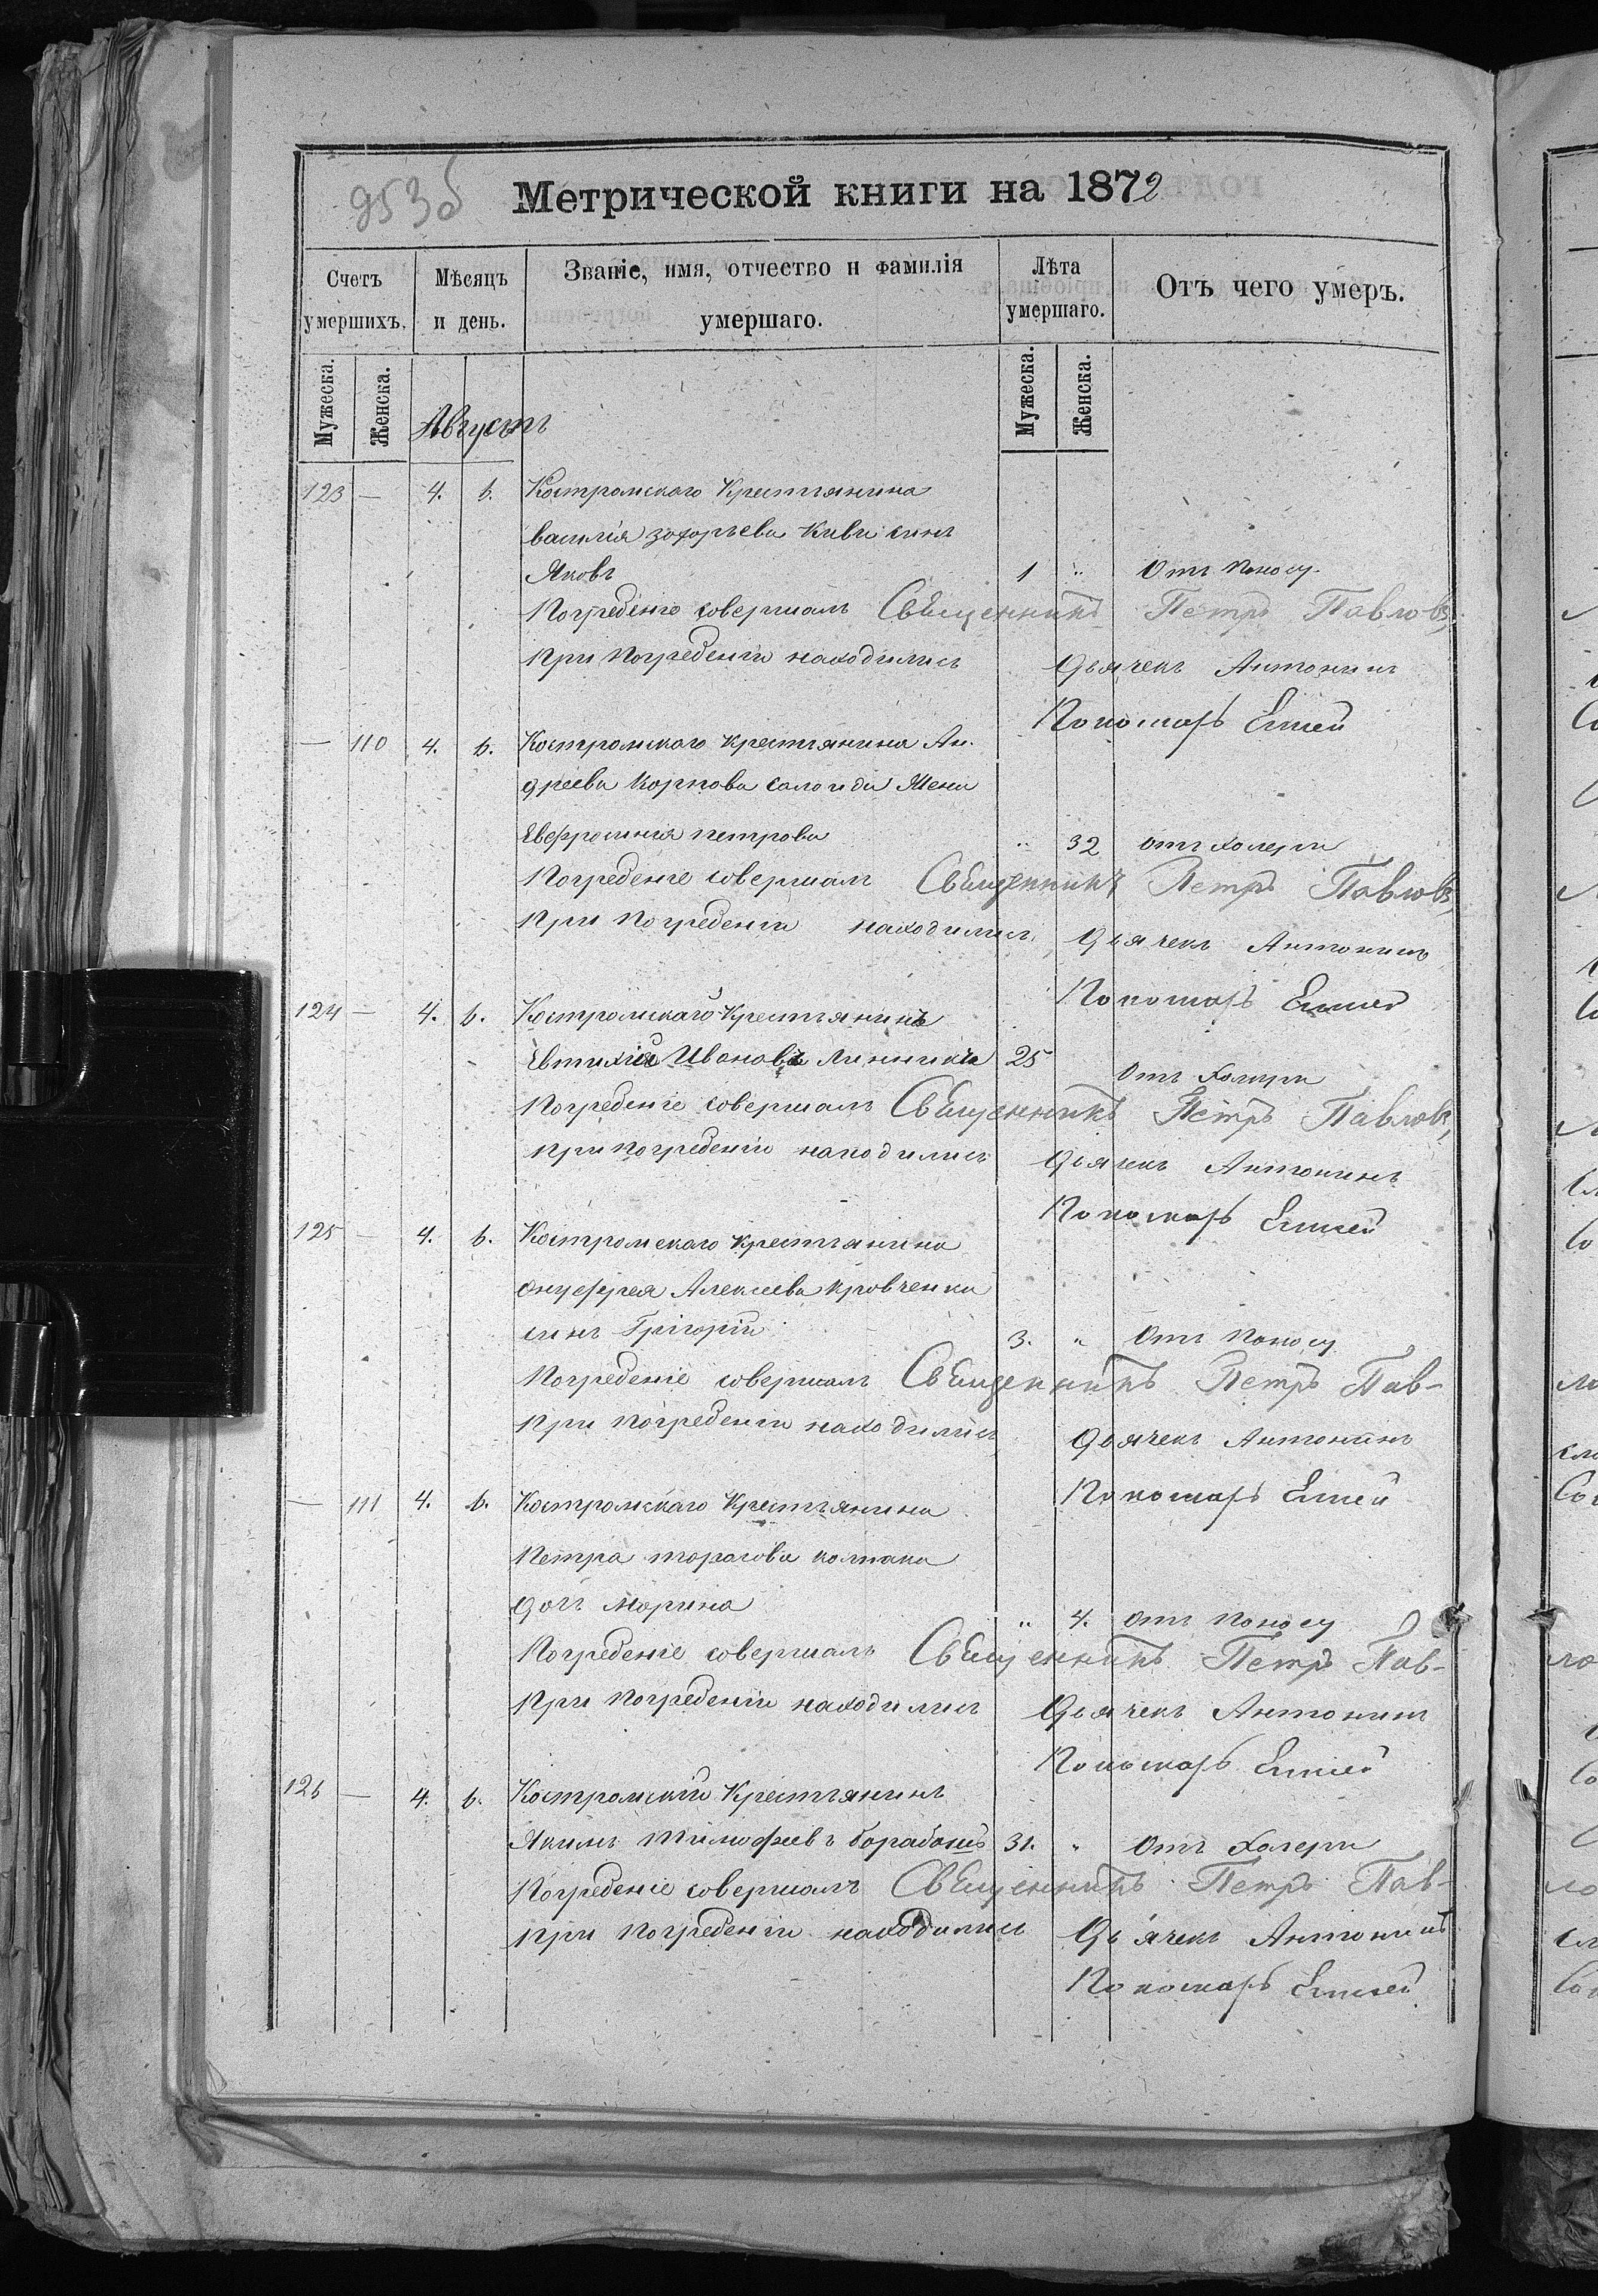 953б
Метрической книги на 1872
Счетъ умершихъ.
Мѣсяцъ и день.
Званіе, имя, отчество и фамилія умершаго.
Лѣта умершаго.
Отъ чего умеръ.
Мужеска.
Женска.
Мужеска.
Женска.
Августъ
123 — 4. 6. Костромскаго Крестьянина
василія зохарьева Киви сынъ
Яковъ 1 " Отъ Поносу.
Погребеніе совершалъ Священникъ Петръ Павловъ,
При Погребеніи находились Дьячекъ Антонинъ
Пономарь Елисей
— 110 4. 6. Костромскаго крестьянина Ан-
дреева Корпова Солоиди Жена
Евфросинія петрова " 32 отъ холеры
Погребеніе совершалъ Священникъ Петръ Павловъ,
При Погребеніи находились Дьячекъ Антонинъ
Пономарь Елисей
124 — 4. 6. Костромскаго Крестьянинъ
Евтихій Ивановъ Линникъ 25
Отъ Холеры
Погребеніе совершалъ Священникъ Петръ Павловъ,
при погребеніи находились Дьячекъ Антонинъ
Пономарь Елисей
125 — 4. 6. Костромскаго крестьянина
онуфрея Алексеева кровченка
сынъ Григорій 3. " Отъ Поносу
Погребеніе совершалъ Священникъ Петръ Пав-
При погребеніи находились Дьячекъ Антонинъ
Пономарь Елисей
— 111 4. 6. Костромскаго Крестьянина
Петра торасова колпака
дочь Морина " 4. отъ Поносу
Погребеніе совершалъ Священникъ Петръ Пав-
При погребеніи находились Дьячекъ Антонинъ
Пономарь Елисей
126 — 4. 6. Костромскій Крестьянинъ
Якимъ Тимофеевъ борабашъ 31. " Отъ Холеры
Погребеніе совершалъ Священникъ Петръ Пав-
При Погребеніи находились Дьячекъ Антонинъ
Пономарь Елисей